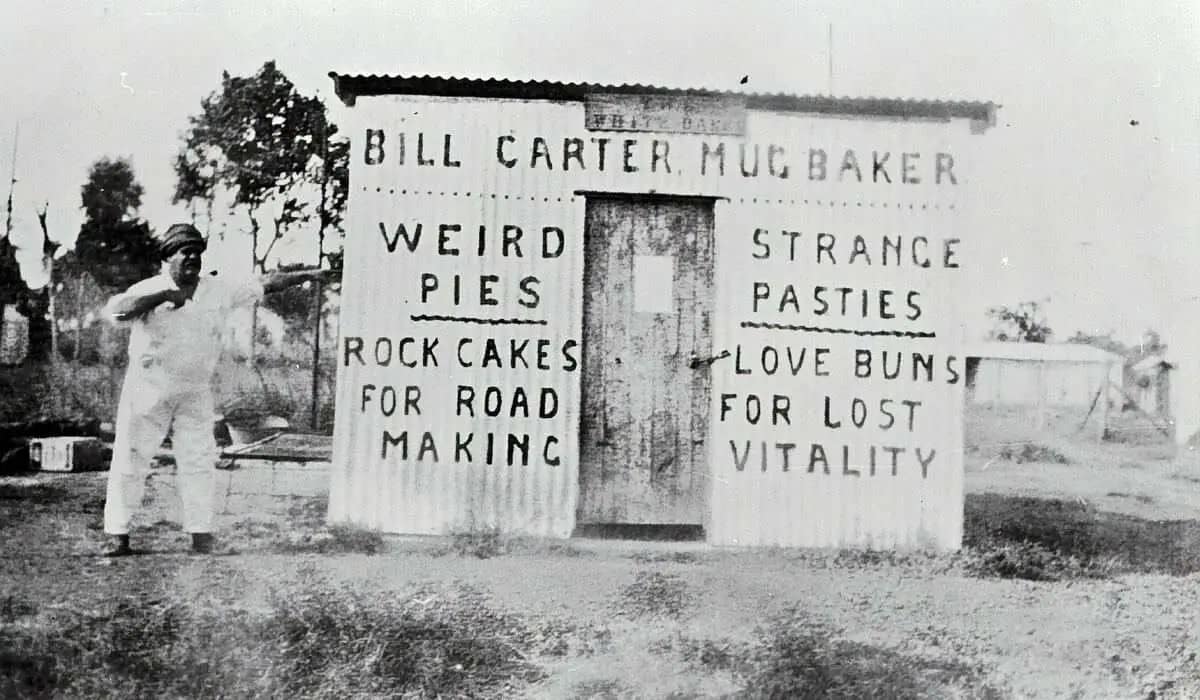 BILL CARTER, MUG BAKER
WEIRD
PIES
ROCK CAKES
FOR ROAD
MAKING
STRANGE
PASTIES
LOVE BUNS
FOR LOST
VITALITY